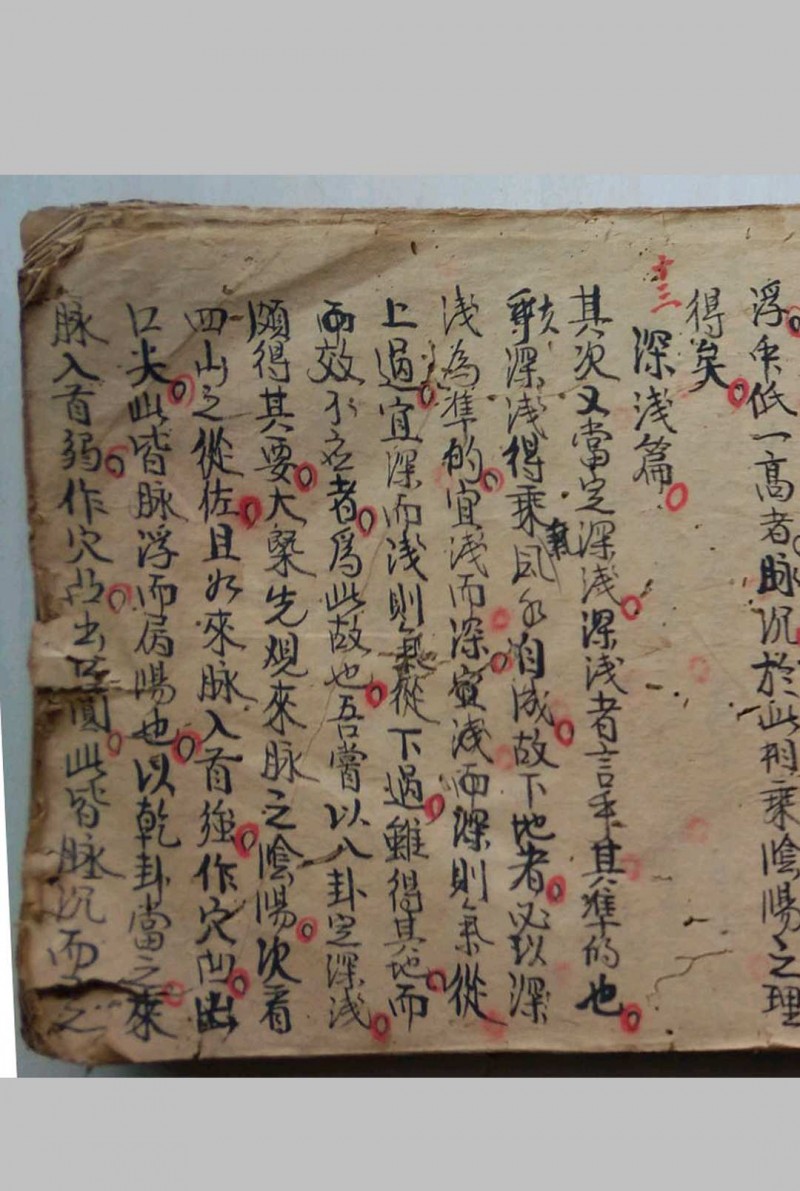 浮中低一高者脉沉於此相乘陰陽之理
得矣
十三
深浅篇
其次又當定深浅深浅者言乎其準的也
深浅得乘風水自成故下地者必以深
浅為準的宜浅而深宜浅而深則氣從
上過宜深而浅則氣從下過雖得其地而
而效不應者爲此故也吾嘗以八卦定深浅
頗得其要大槩先观來脉之陰陽次看
四山之從佐且如來脉入首強作穴凹出
口尖此皆脉浮而属陽也以乾卦當之來
脉入首弱作穴凸出口圓此皆脉沉而